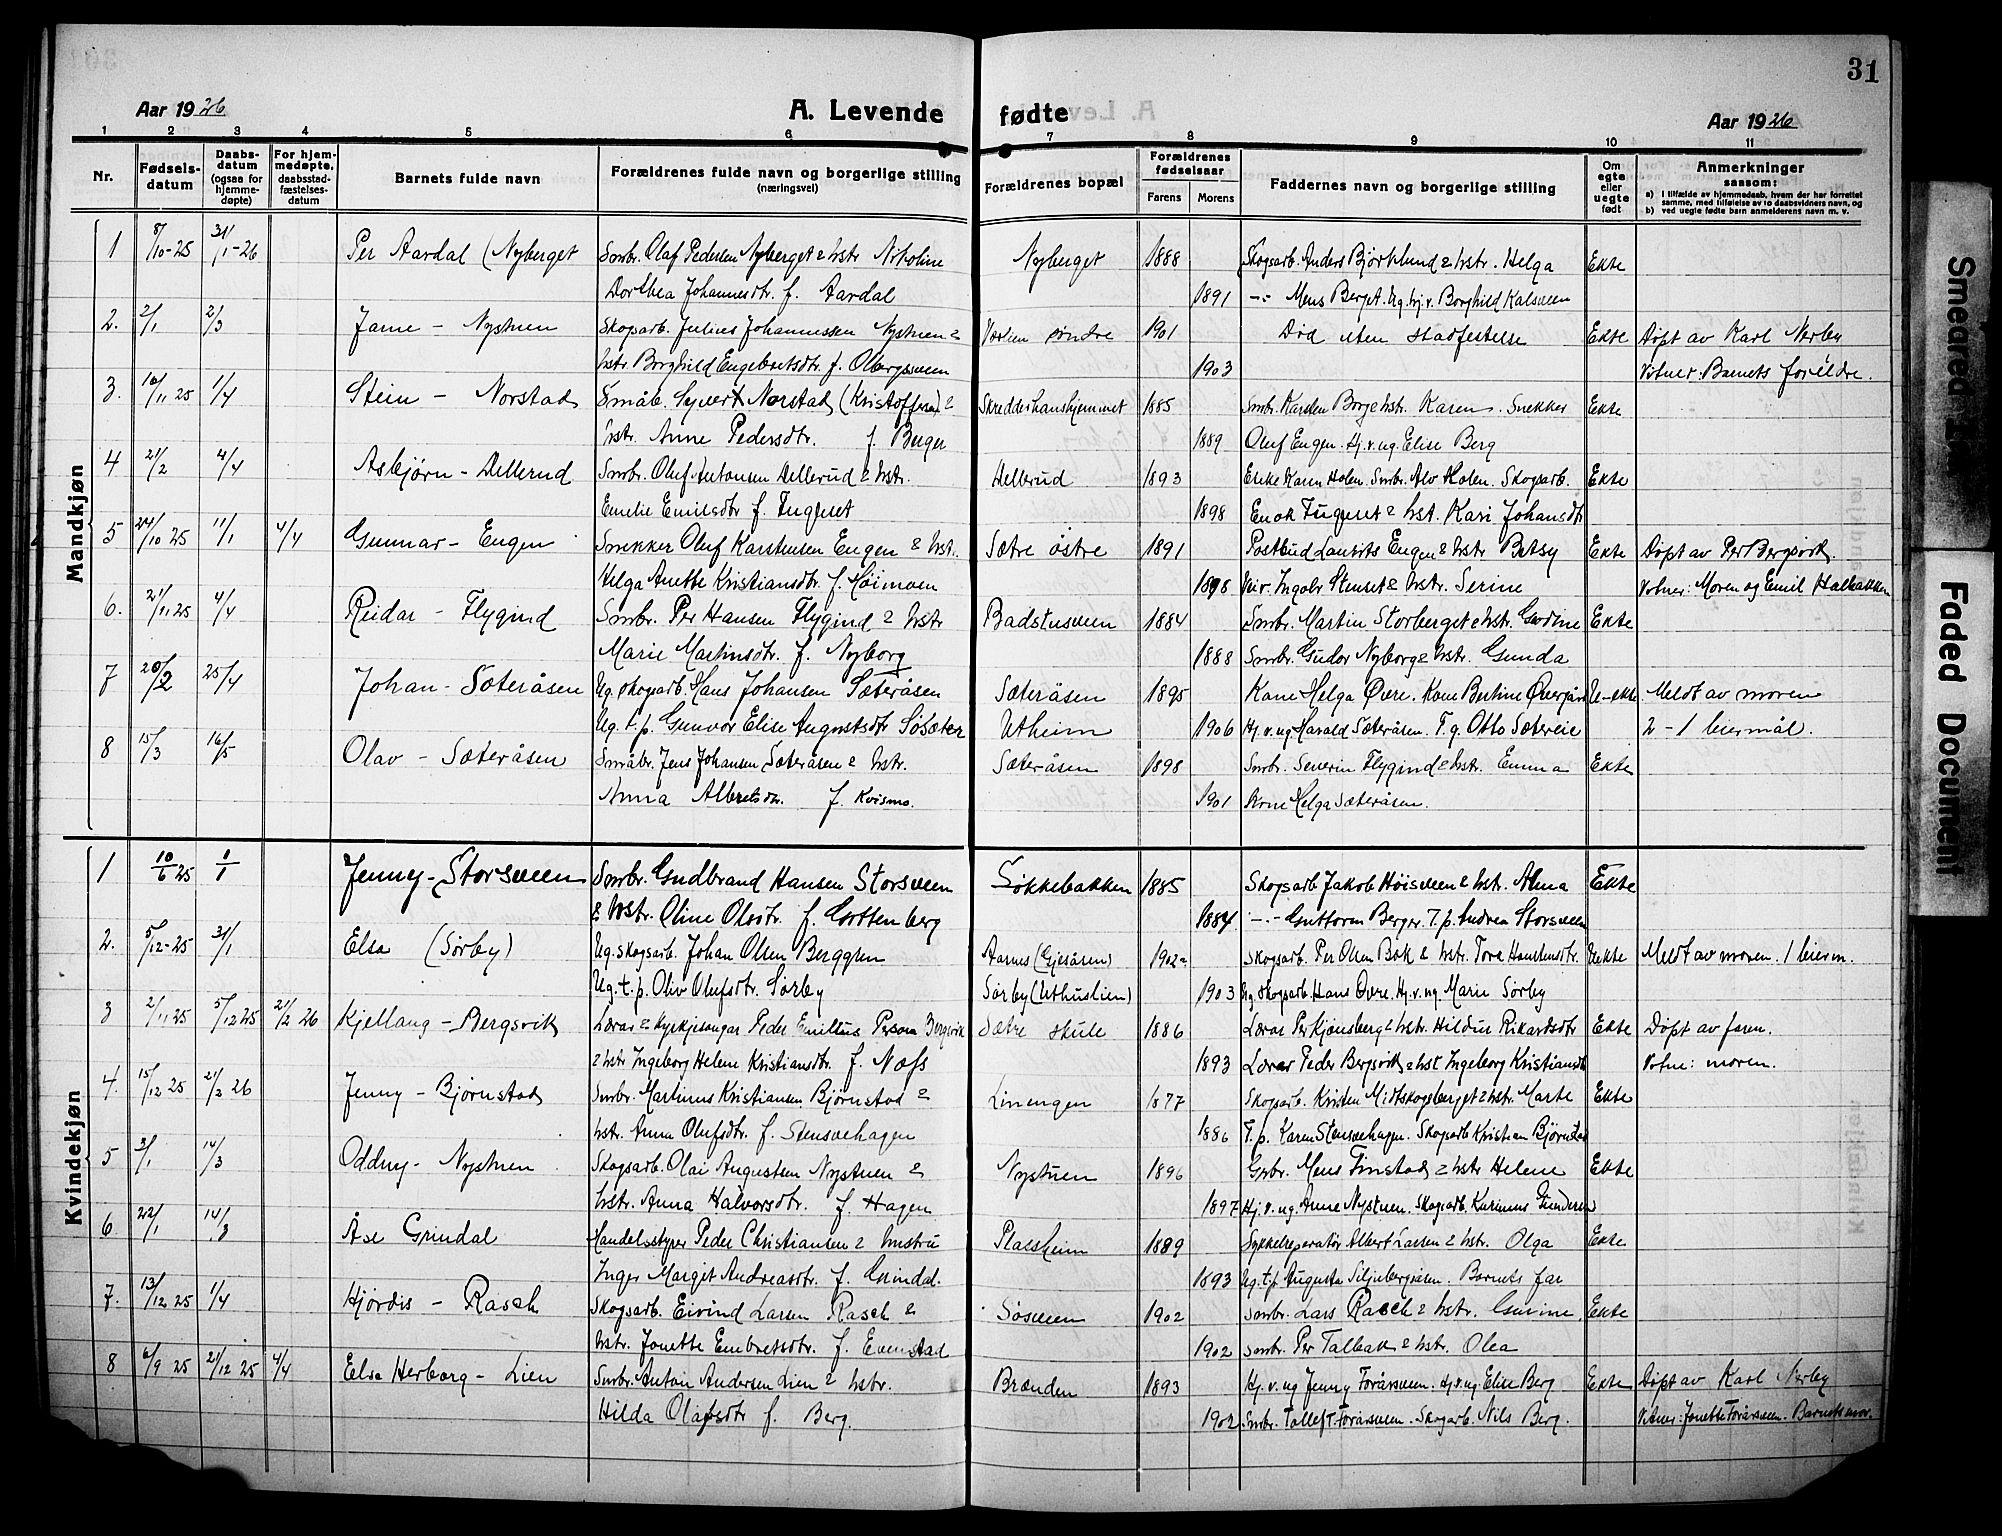 31
Aar 1926
A. Levende
fødte
Aar 1926
1 2 3 4 5 6 7 8 9 10 11
Nr.
Fødsels-
datum
Daabs-
datum
(ogsaa for
hjemme-
døpte)
For hjem-
medøpte,
daabsstad-
fæstelses-
datum
Barnets fulde navn
Forældrenes fulde navn og borgerlige stilling
(næringsvei)
Forældrenes bopæl
Forældrenes
fødselsaar
Farens
Morens
Faddernes navn og borgerlige stilling
Om
egte
eller
uegte
født
Anmerkninger
saasom:
a) I tilfælde av hjemmedaab, hvem der har forrettet
samme, med tilføielse av to daabsvidners navn, og
b) ved uegte fødte barn anmelderens navn m. v.
Mandkjøn
1 8/10-25 31/1-26 Per Aardal (Nyberget Smbr. Olaf Pedersen Nyberget & hstr Nikoline Nyberget 1888 Skogsarb. Anders Bjørklund & hstr. Helga Ekte
Dorthea Johannesdtr. f. Aardal 1891 -"- Mons Berget. Ug. hj.v. Borghild Kalsveen
2. 2/1 2/3 Jarne - Nystuen Skogsarb. Julius Johannessen Nystuen & søndre 1901 Død uten stadfestelse Ekte Døpt av Karl Nerby
hstr Borghild Engebretsdtr. f. Obergsveen 1903 Vitner: Barnets foreldre.
3. 10/11 25 1/4 Stein - Norstad Småb. Syvert Norstad (Kristoffersen) & Skreddershanshjemmet 1885 Smbr. Karsten Berg & hstr. Karen. Snekker Ekte
hstr. Anne Pedersdtr. f. Berger 1889 Oluf Engen. Hj.v.ug. Elise Berg
4 21/2 4/4 Asbjørn - Dellerud Smbr. Oluf Antonsen Dellerud & hstr. Dellerud 1893 Enke Karen Holen. Smbr. Alv Holen. Skogsarb. Ekte
Emelie Emilsdtr f. Tuguset 1898 Enok Tuguset & hst. Kari Johansdtr
5 24/10 25 11/1 4/4 Gunnar - Engen Snekker Oluf Karstensen Engen & hst. Sætre østre 1891 Postbud Laurits Engen & hstr Betsy Ekte Døpt av Per Bergsvik.
Helga Anette Kristiansdtr. f. Moimoen 1898 Ingolv Stenset & hstr. Serine Vitner: Moren og Emil Halbakken
6. 21/11 25 4/4 Reidar - Flygind Smbr. Per Hansen Flygind & hstr Badstusveen 1884 Smbr. Martin Storberget & hstr. Gudine Ekte
Marie Martinsdtr. f. Nyborg 1888 Smbr. Gudor Nyborg & hstr. Gunda
7 20/2 25/4 Johan - Sæteråsen Ug. skogsarb. Hans Johansen Sæteråsen Sæteråsen 1895 Kone Helga Øvre. Kone Bertine Øvergård U-ekte Meldt av moren
Ug. t.p. Gunvor Elise Augustsdtr Søsæter Utheim 1906 Hj.v.ug Harald Sæteråsen. T.g. Otto Sætereie 2 - 1 leiermål.
8 15/3 16/5 Olav - Sæteråsen Småbr. Jens Johansen Sæteråsen & hstr. Sæteråsen 1898 Smbr. Severin Flygind & hstr. Emma Ekte
Anna Albretsdtr. f. Kvismo. 1901 Kone Helga Sæteråsen.
Kvindekjøn
1 10/6 25 1/1 Jenny - Storsveen Smbr. Gudbrand Hansen Storsveen Søkkebakken 1885 Skogsarb Jakob Høisveen & hstr. Alma Ekte
& hstr. Oline Olsdtr. f. Grøttenberg 1884. -"- Guttorm Berger. T.p. Andrea Storsveen
2. 5/12-25 31/1 Else (Sørby) Ug. skogsarb. Johan Olsen Berggren Aarnes (Gjesåsen) 1902 Skogsarb. Per Olsen Bøk & hstr. Tora Hanstensdtr. Uekte Meldt av moren. 1 leierm.
Ug. t.p. Oliv Olufsdtr. Sørby Sørby (Uthuslien) 1903 Ug. skogsarb. Hans Øvre. Hj.v.ug. Marie Sørby
3 2/11 25 5/12 25 21/2 26 Kjellaug - Bergsvik Lærar & kyrkjesongar Peder Emilius Person Bergsvik Sætre skule 1886 Lærar Per Kjønsberg & hstr. Hildur Rikardsdtr Ekte Døpt av faren.
& hstr Ingeborg Helene Kristiansdtr. f. Næss 1893 Lærar Peder Bergsvik & hst Ingeborg Kristiansdtr Vitne: moren.
4. 15/12 25 21/2 26 Jenny - Bjørnstad Smbr. Martinus Kristiansen Bjørnstad & Linengen 1877 Skogsarb. Kristen Midtskogsberget & hstr. Marte Ekte
hstr. Anna Olufsdtr. f. Stensvehagen 1886 T.p. Karen Stensvehagen. Skogsarb Kristian Bjørnstad
5 3/1 14/3 Oddny - Nystuen Skogsarb. Olai Augustsen Nystuen & Nystuen 1896 Grbr. Mons Finstad & hstr Helene Ekte
hstr. Anna Halvorsdtr. f. Hagen 1897 Hj.v.ug. Anne Nystuen. Skogsarb Karinus Gundersen
6 22/1 14/3 Åse Grindal Handelsstyrer Peder Christiansen & hustru Plassheim 1889 Sykkelreparatør Albert Larsen & hstr. Olga Ekte
Inger Margit Andreasdtr. f. Grindal. 1893 Ug. t.p. Augusta Siljubergsåsen. Barnets far
7. 13/12 25 1/4 Hjørdis - Rasch Skogsarb. Eivind Larsen Rasch & Søsveen 1902 Smbr. Lars Rasch & hstr. Gurine. Ekte
hstr. Jonette Embretsdtr. f. Evenstad 1902 Smbr. Per Talbak & hstr. Olea
8 6/9 25 21/12 25 4/4 Else Herborg - Lien Smbr. Anton Andersen Lien & hstr. Brænden 1893 Hj.v.ug Jenny Forårsveen. Hj.v.ug. Elise Berg Ekte Døpt av Karl Nerby
Hilda Olafsdtr f. Berg. 1902 Smbr. Tollef Forårsveen. Skogsarb. Nils Berg. Vitner: Jonette Forårsveen. Barnets mor.
Smeared
Faded Document